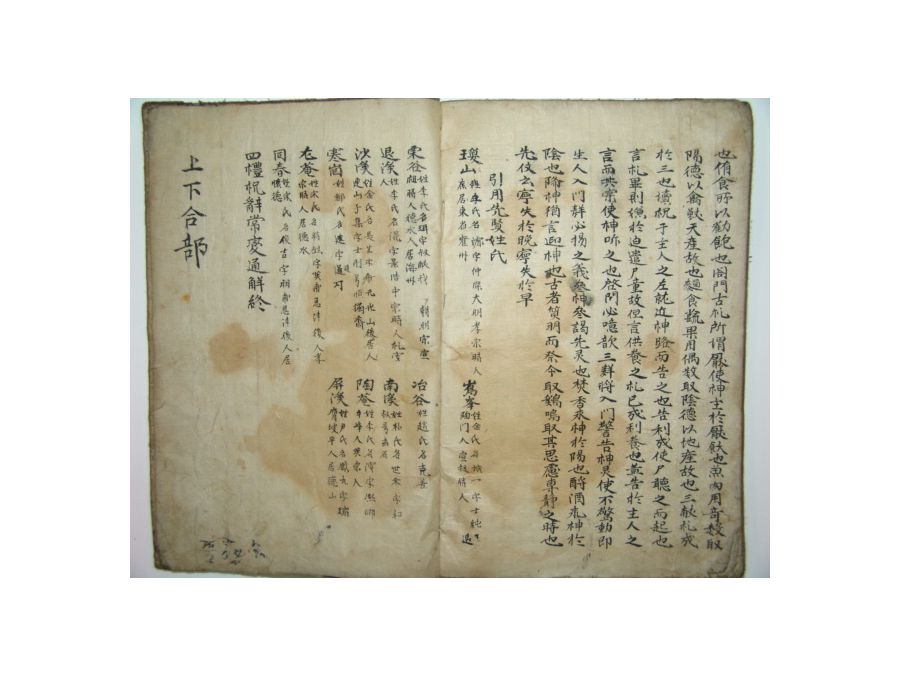 也侑食所以勸飽也闔門古礼所謂厭使神主於厭飫也魚肉用奇數取
陽德以禽獸天產故也麵食蔬果用偶数取陰德以地產故也三献礼成
於三也讀祝于主人之左就近神路而告之也告利成使尸聽之而起也
言礼畢則猶於迫遣尸重故但言供養之礼已成利養也盖告於主人之
言而共宗使神听之也啓門心噫歆三聲將入門警告神灵使不驚動即
生人入門聲必揚之義參神參謁先灵也焚香求神於陽也酹酒求神於
陰也降神猶言迎神也古者質明而祭今取鷄鳴取其思慮專靜之時也
先伇云寧失於晚寧失於早
引用先賢姓氏
瓊山 姓丘氏名濬字仲深大明孝宗時人
居
栗谷 姓李氏名珥字叔献我朝明宗宣
祖時人德水人居海州
退溪 姓李氏名滉字景浩中宗時人
沙溪 姓金氏名長生
寒岡 姓鄭氏名逑字道可
尤菴 姓宋氏名時烈字英甫恩津後人孝
宗時人居德水
同春 姓宋氏名俊吉字明甫恩津後人居
懷德
冶谷 姓趙氏名克善
南溪 姓朴氏名世采字和
陶菴 姓李氏名縡字熙卿
屏溪 姓尹氏名鳳九字瑞
膺坡平人居德山
四禮祝辭常変通解終
上下合部